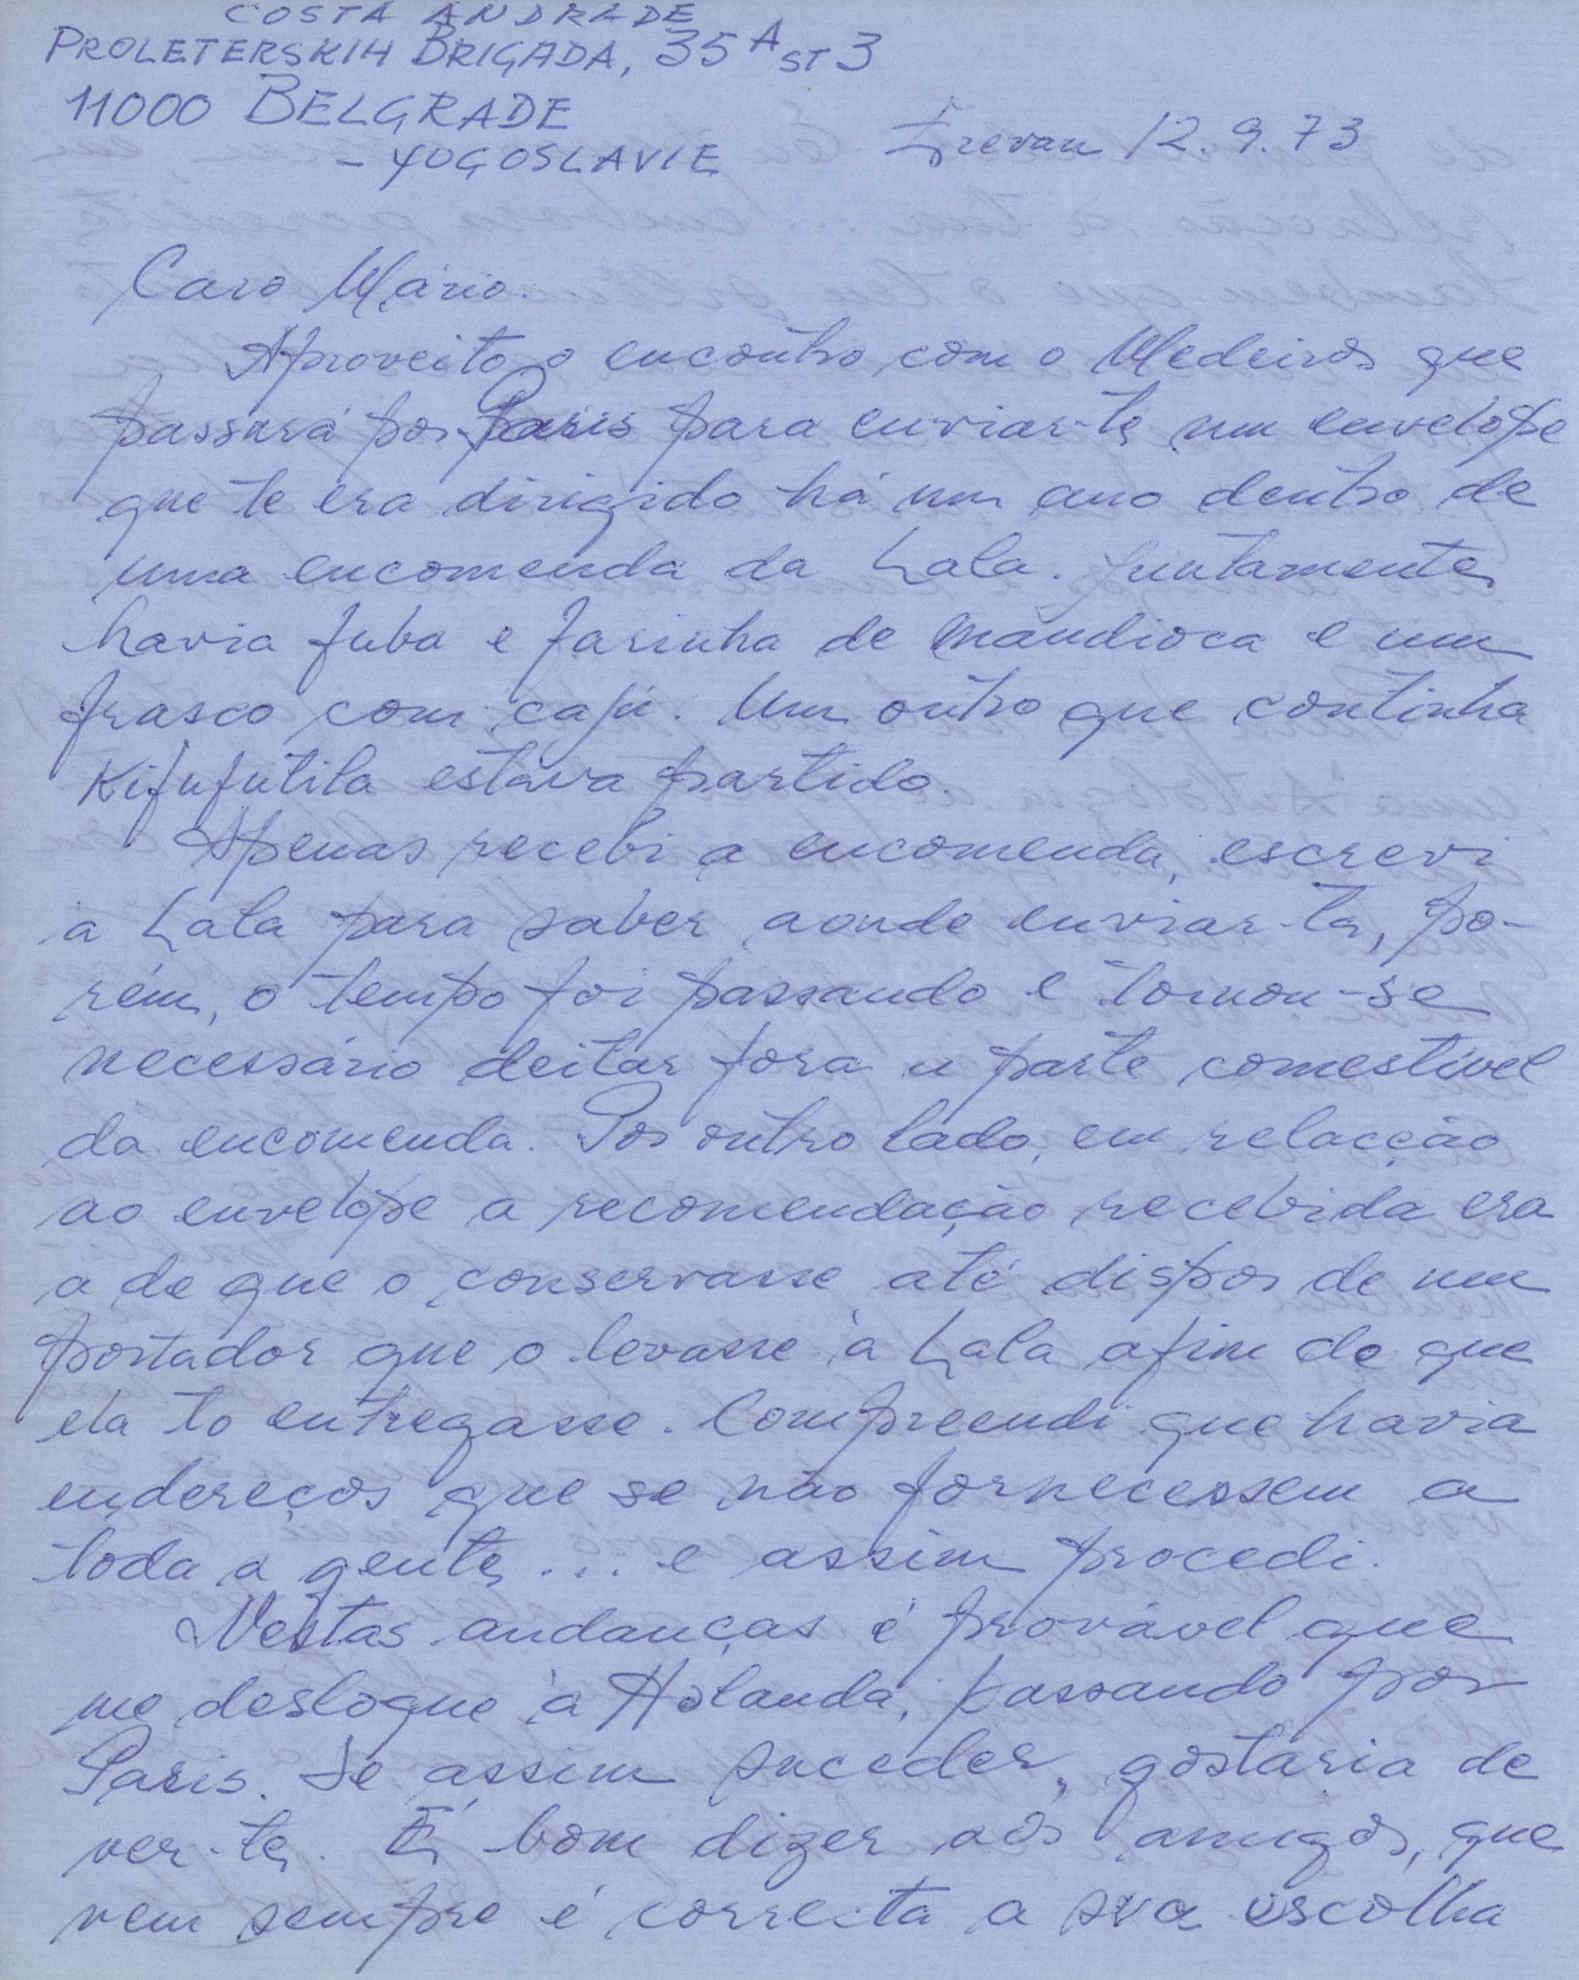 COSTA ANDRADE
PROLETERSKIH BRIGADA, 35 A ST 3
11000 BELGRADE
- YUGOSLAVIE
Erevan 12.9.73
Caro Mário.
Aproveito o encontro com o Medeiros que
passará por Paris para enviar-te um envelope
que te era dirigido há um ano dentro de
uma encomenda da Lala. Juntamente
havia fuba e farinha de mandioca e um
frasco com cajú. Um outro que continha
Kifufutila estava partido.
Apenas recebi a encomenda, escrevi
à Lala para saber aonde enviar-ta, po-
rém, o tempo foi passando e tornou-se
necessário deitar fora a parte comestível
da encomenda. Por outro lado, em relacção
ao envelope a recomendação recebida era
a de que o conservasse até dispor de um
portador que o levasse à Lala afim de que
ela to entregasse. Compreendi que havia
endereços que se não fornecessem a
toda a gente... e assim procedi.
Nestas andanças é provável que
me desloque à Holanda, passando por
Paris. Se assim suceder, gostaria de
ver-te. É bom dizer aos amigos, que
nem sempre é correcta a sua escolha